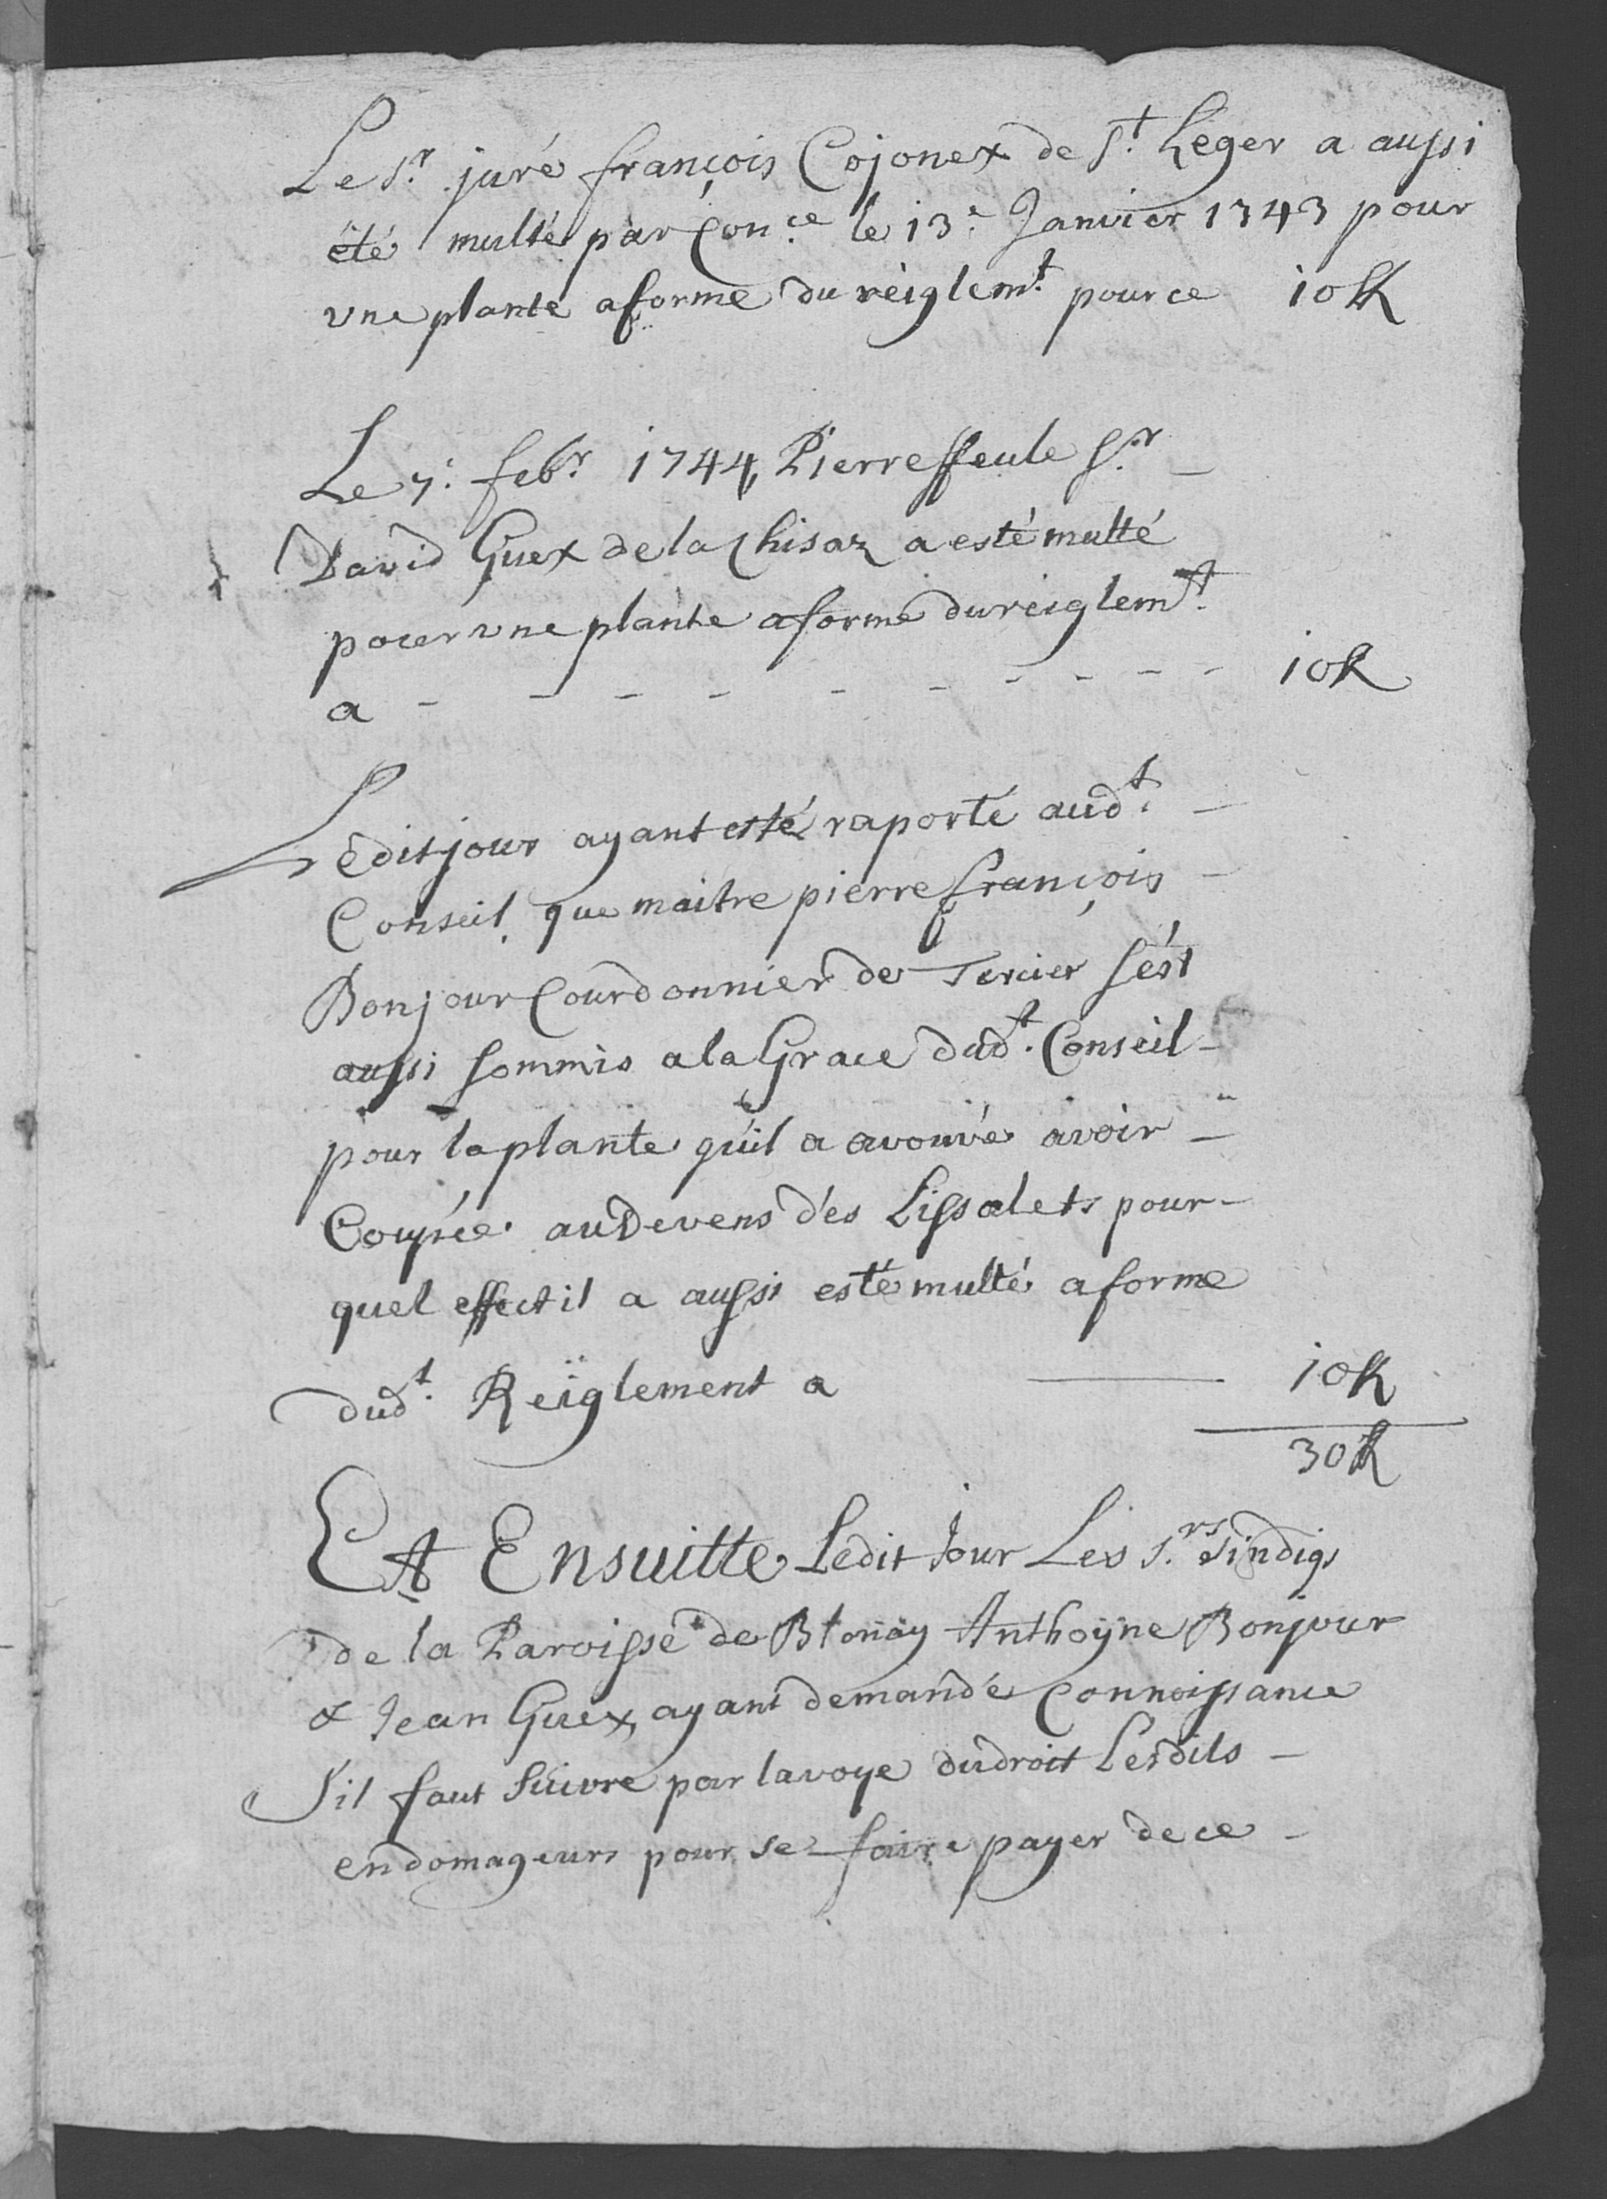 Le Sr. juré françois Cojonex de St. Leger a aussi
été multé par Con.ce le 13.e Janvier 1743 pour
vne plante a forme du réiglemt. pour ce 10 ff
Le 7.e febr. 1744, Pierre ffeu le Sr. –
David Guex de la Chisaz a esté multé
pour vne plante a forme du réiglemt.
a - - - - - - - - - - 10 ff
Ledit jour ayant esté raporté audt. –
Conseil, que maitre pierre françois –
Bonjour Courdonnier de Tercier s'ést
aussi sommis a la Grace dudt. Conseil –
pour la plante qu'il a avouvé avoir –
Coupée au Devens dés Lissalets pour –
quel effect il a aussi esté multé a forme
dudt. Reïglement a — 10 ff
30 ff
Et Ensuitte Ledit Jour Les S.rs Sindiqs
de la Paroisse de Blonay Anthoÿne Bonjour
& Jean Guex, ayant demandé Connoissance
S'il faut Suivre par la voye du droit Lesdits –
endomageurs pour se faire payer de ce –